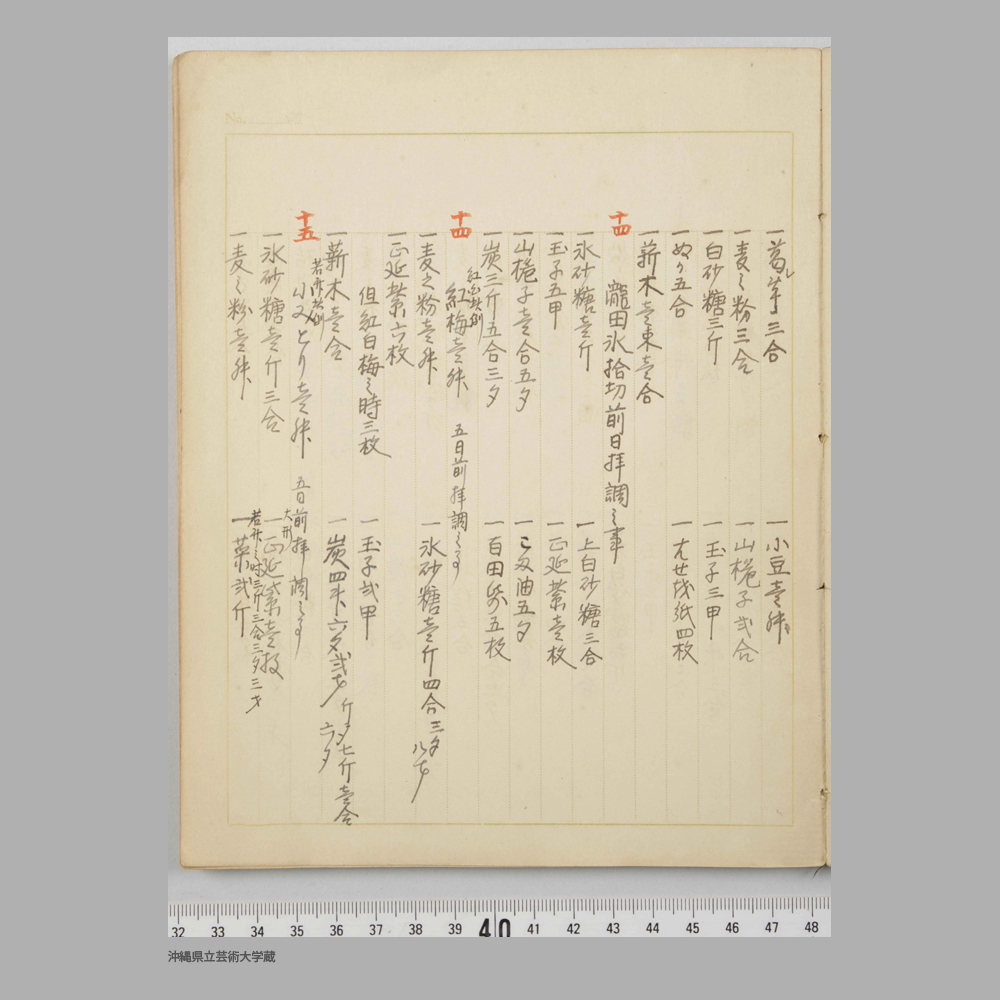 一葛芋三合
一小豆壱升
一麦之粉三合
一山梔子弐合
一白砂糖三斤
一玉子三甲
一ぬか五合
一九世我紙四枚
一薪木壱束壱合
十四
龍田氷拾切前日拝調之事
一氷砂糖壱斤
一上白砂糖三合
一玉子五甲
一正延紫壱枚
一山梔子壱合五夕
一ごま油五夕
一炭三斤五合三夕
一百田紙五枚
十四
紅梅壱升
五日前拝調之事
一麦之粉壱升
一氷砂糖壱斤四合三夕
一正延紫六枚
但紅白梅之時三枚
一玉子弐甲
一薪木壱合
一炭四斗六夕弐才
斤ニメ七斤壱合
六夕
十五
小ゑとり壱升
五日前拝調之事
一氷砂糖壱斤三合
大形
一正延紫壱枚
若形之時三斤三合三夕三才
一麦之粉壱升
一葉弐斤
No.
32 33 34 35 36 37 38 39 40 41 42 43 44 45 46 47 48
沖縄県立芸術大学蔵